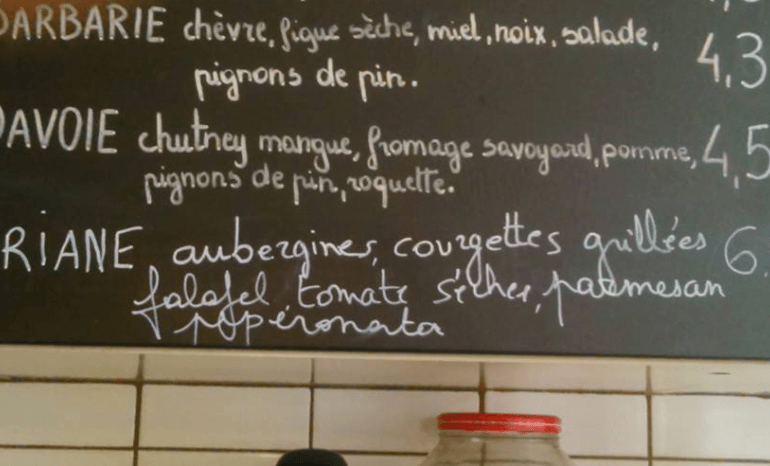 DARBARIE chèvre, figue sèche, miel, noix, salade, 4,3
pignons de pin.
DAVOIE chutney mangue, fromage savoyard, pomme, 4,5
pignons de pin, roquette.
RIANE aubergines, courgettes grillées 6,
falafel, tomate séches, parmesan
poperonata